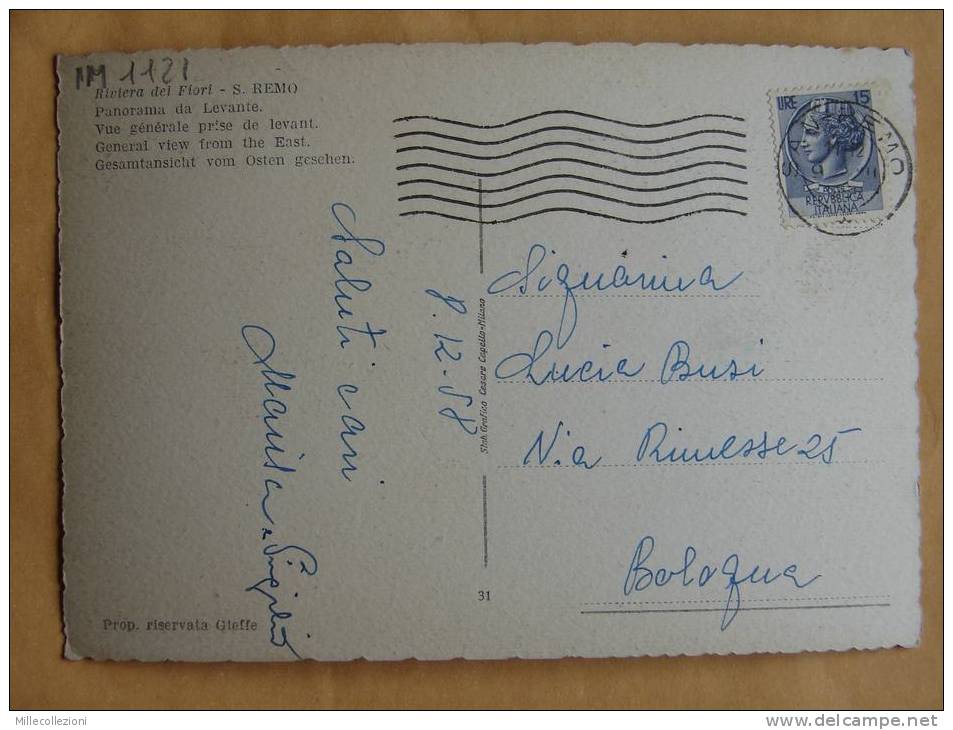 IM 1121
Riviera dei Fiori - S. REMO
Panorama da Levante.
Vue générale prise de levant.
General view from the East.
Gesamtansicht vom Osten gesehen.
LIRE 15
REPVBBLICA
ITALIANA
Saluti cari
8.12.58
Stab. Grafico Cesare Capello - Milano
Signorina
Lucia Busi
Via Rimesse 25
Bologna
31
Prop. riservata Gieffe
Millecollezioni
www.delcampe.net